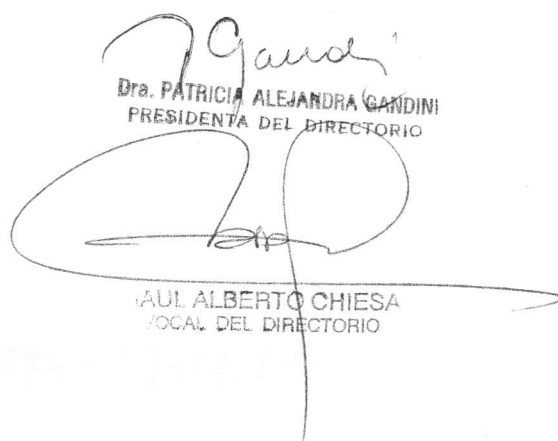 Gandi
Dra. PATRICIA ALEJANDRA GANDINI
PRESIDENTA DEL DIRECTORIO
AUL ALBERTO CHIESA
VOCAL DEL DIRECTORIO